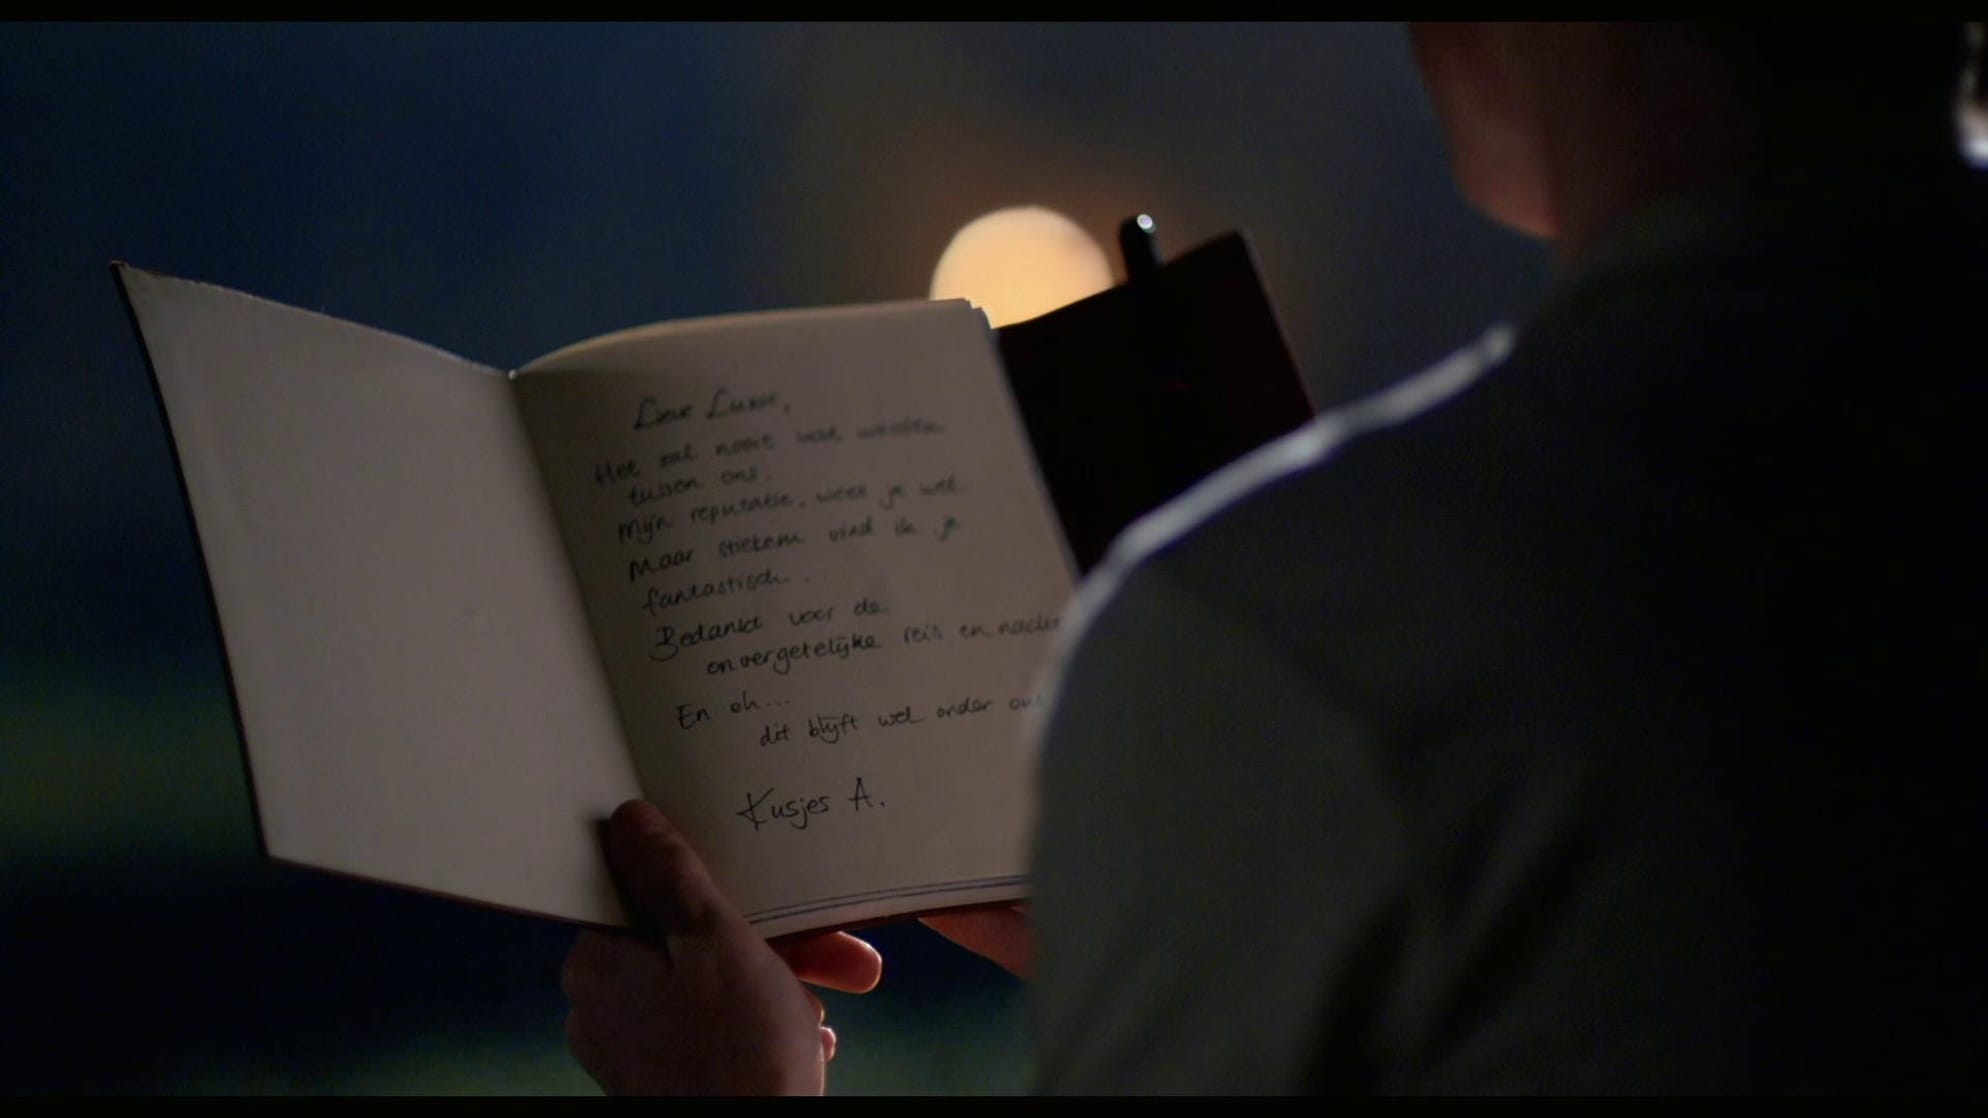 Lieve
Het zal nooit wat worden
tussen ons.
Mijn reputatie, weet je wel
Maar stiekem vind ik je
fantastisch.
Bedankt voor de
onvergetelijke reis en
En eh...
dit blijft wel onder ons
Kusjes A.